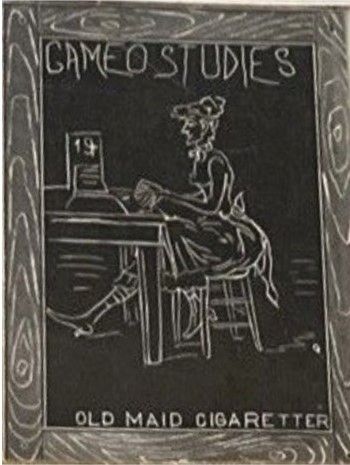 CAMEO STUDIES
19
OLD MAID CIGARETTER